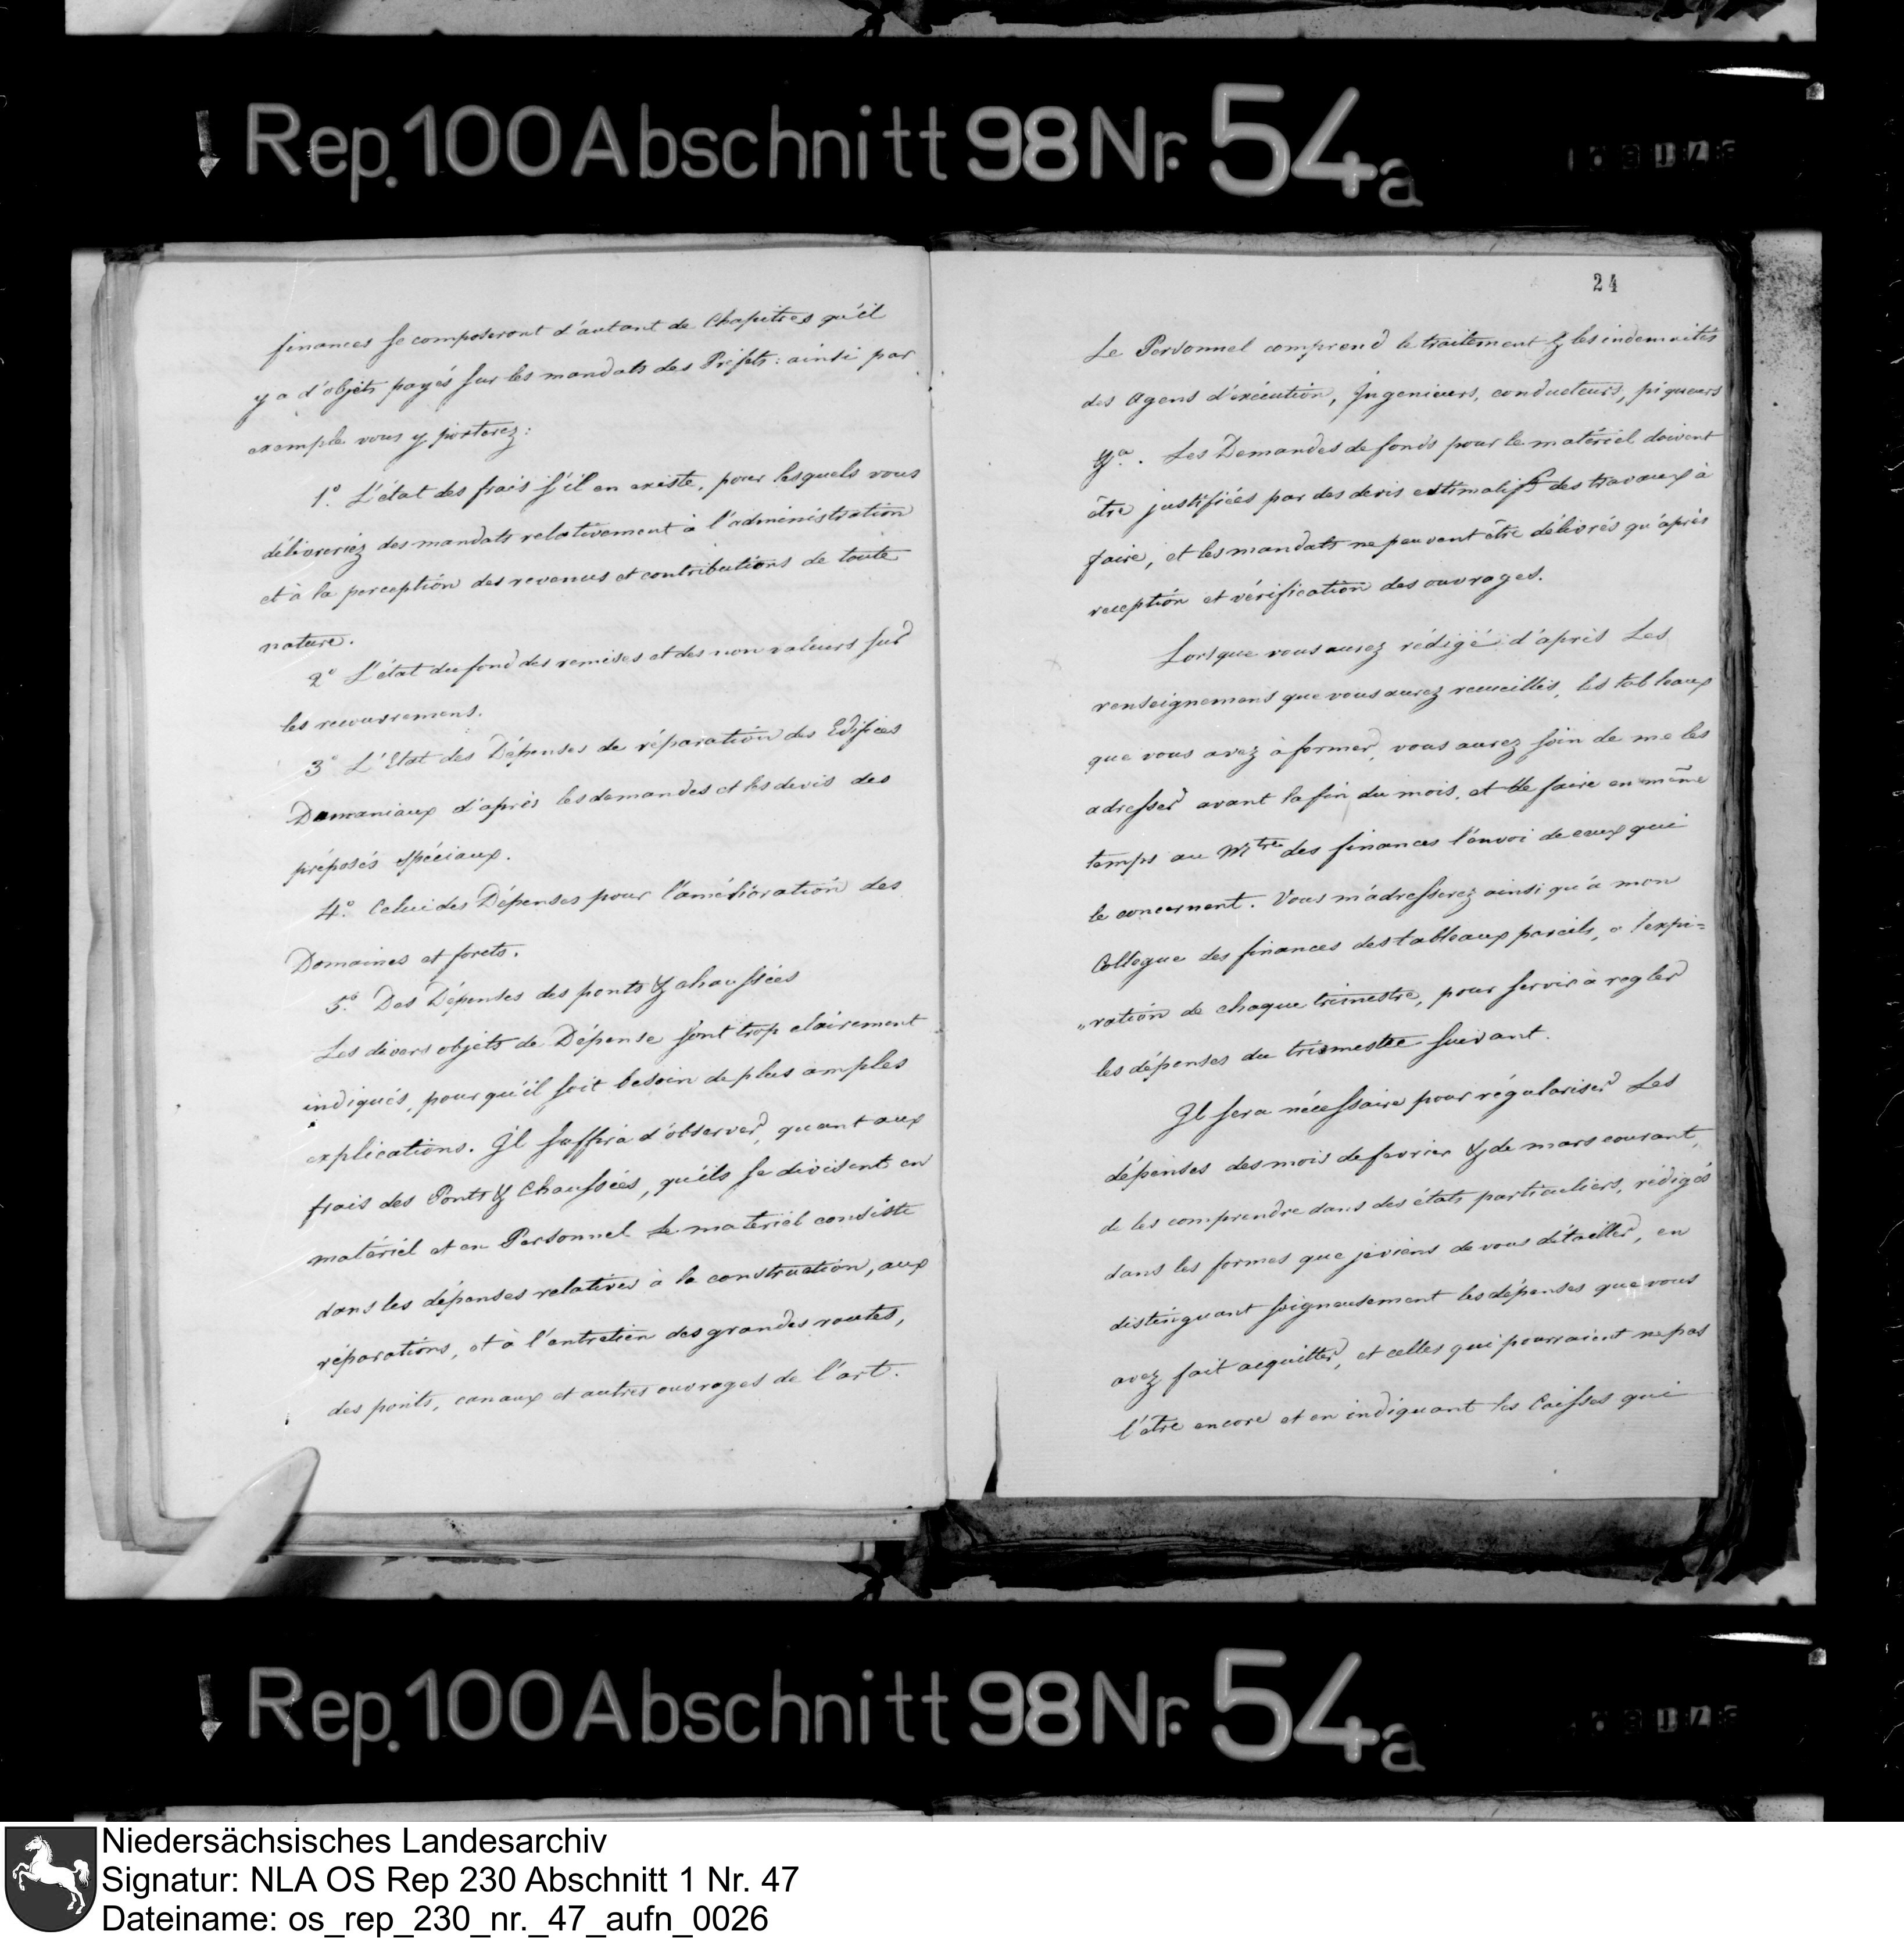 Rep. 100 Abschnitt 98 Nr. 54a
finances se composeront d'autant de Chapitres qu'il
y a d'objets payés sur les mandats des Préfets: ainsi par
exemple vous y porterez:
1.° L'état des frais s'il en existe, pour lesquels vous
délivreriez des mandats relativement à l'administration
et à la perception des revenus et contributions de toute
nature.
2° L'état du fond des remises et des non valeurs sur
les recouvremens.
3° L'Etat des Dépenses de réparation des Edifices
Domaniaux d'après les demandes et les devis des
préposés spéciaux.
4.° Celui des Dépenses pour l'amélioration des
Domaines et forets.
5.° Des Dépenses des ponts & chaussées
Les divers objets de Dépense sont trop clairement
indiqués, pour qu'il soit besoin de plus amples
explications. Il suffira d'observer, quant aux
frais des Ponts & Chaussées, qu'ils se divisent en
matériel et en Personnel Le matériel consiste
dans les dépenses relatives à la construction, aux
réparations, et à l'entretien des grandes routes,
des ponts, canaux et autres ouvrages de l'art.
24
Le Personnel comprend le traitement & les indemnités
des Agens d'exécution, Ingenieurs, conducteurs, piqueurs
&.a. Les Demandes de fonds pour le matériel doivent
être justifiées par des devis estimatifs des travaux à
faire, et les mandats ne peuvent être délivrés qu'après
reception et vérification des ouvrages.
Lorsque vous aurez rédigé d'après Les
renseignemens que vous aurez recueillis, les tableaux
que vous avez à former, vous aurez soin de me les
adresser avant la fin du mois, et de faire en même
temps au Mtre des finances l'envoi de ceux qui
le concernent. Vous m'adresserez ainsi qu'à mon
Collegue des finances des tableaux pareils, a l'expi=
"ration de chaque trimestre, pour servir à regler
les dépenses du trimestre suivant.
Il sera nécessaire pour régulariser Les
dépenses des mois de fevrier & de mars courant,
de les comprendre dans des états particuliers, rédigés
dans les formes que je viens de vous détailler, en
distinguant soigneusement les dépenses que vous
avez fait acquitter, et celles qui pourraient ne pas
l'être encore et en indiquant les Caisses qui
Rep. 100 Abschnitt 98 Nr. 54a
Niedersächsisches Landesarchiv
Signatur: NLA OS Rep 230 Abschnitt 1 Nr. 47
Dateiname: os_rep_230_nr._47_aufn_0026